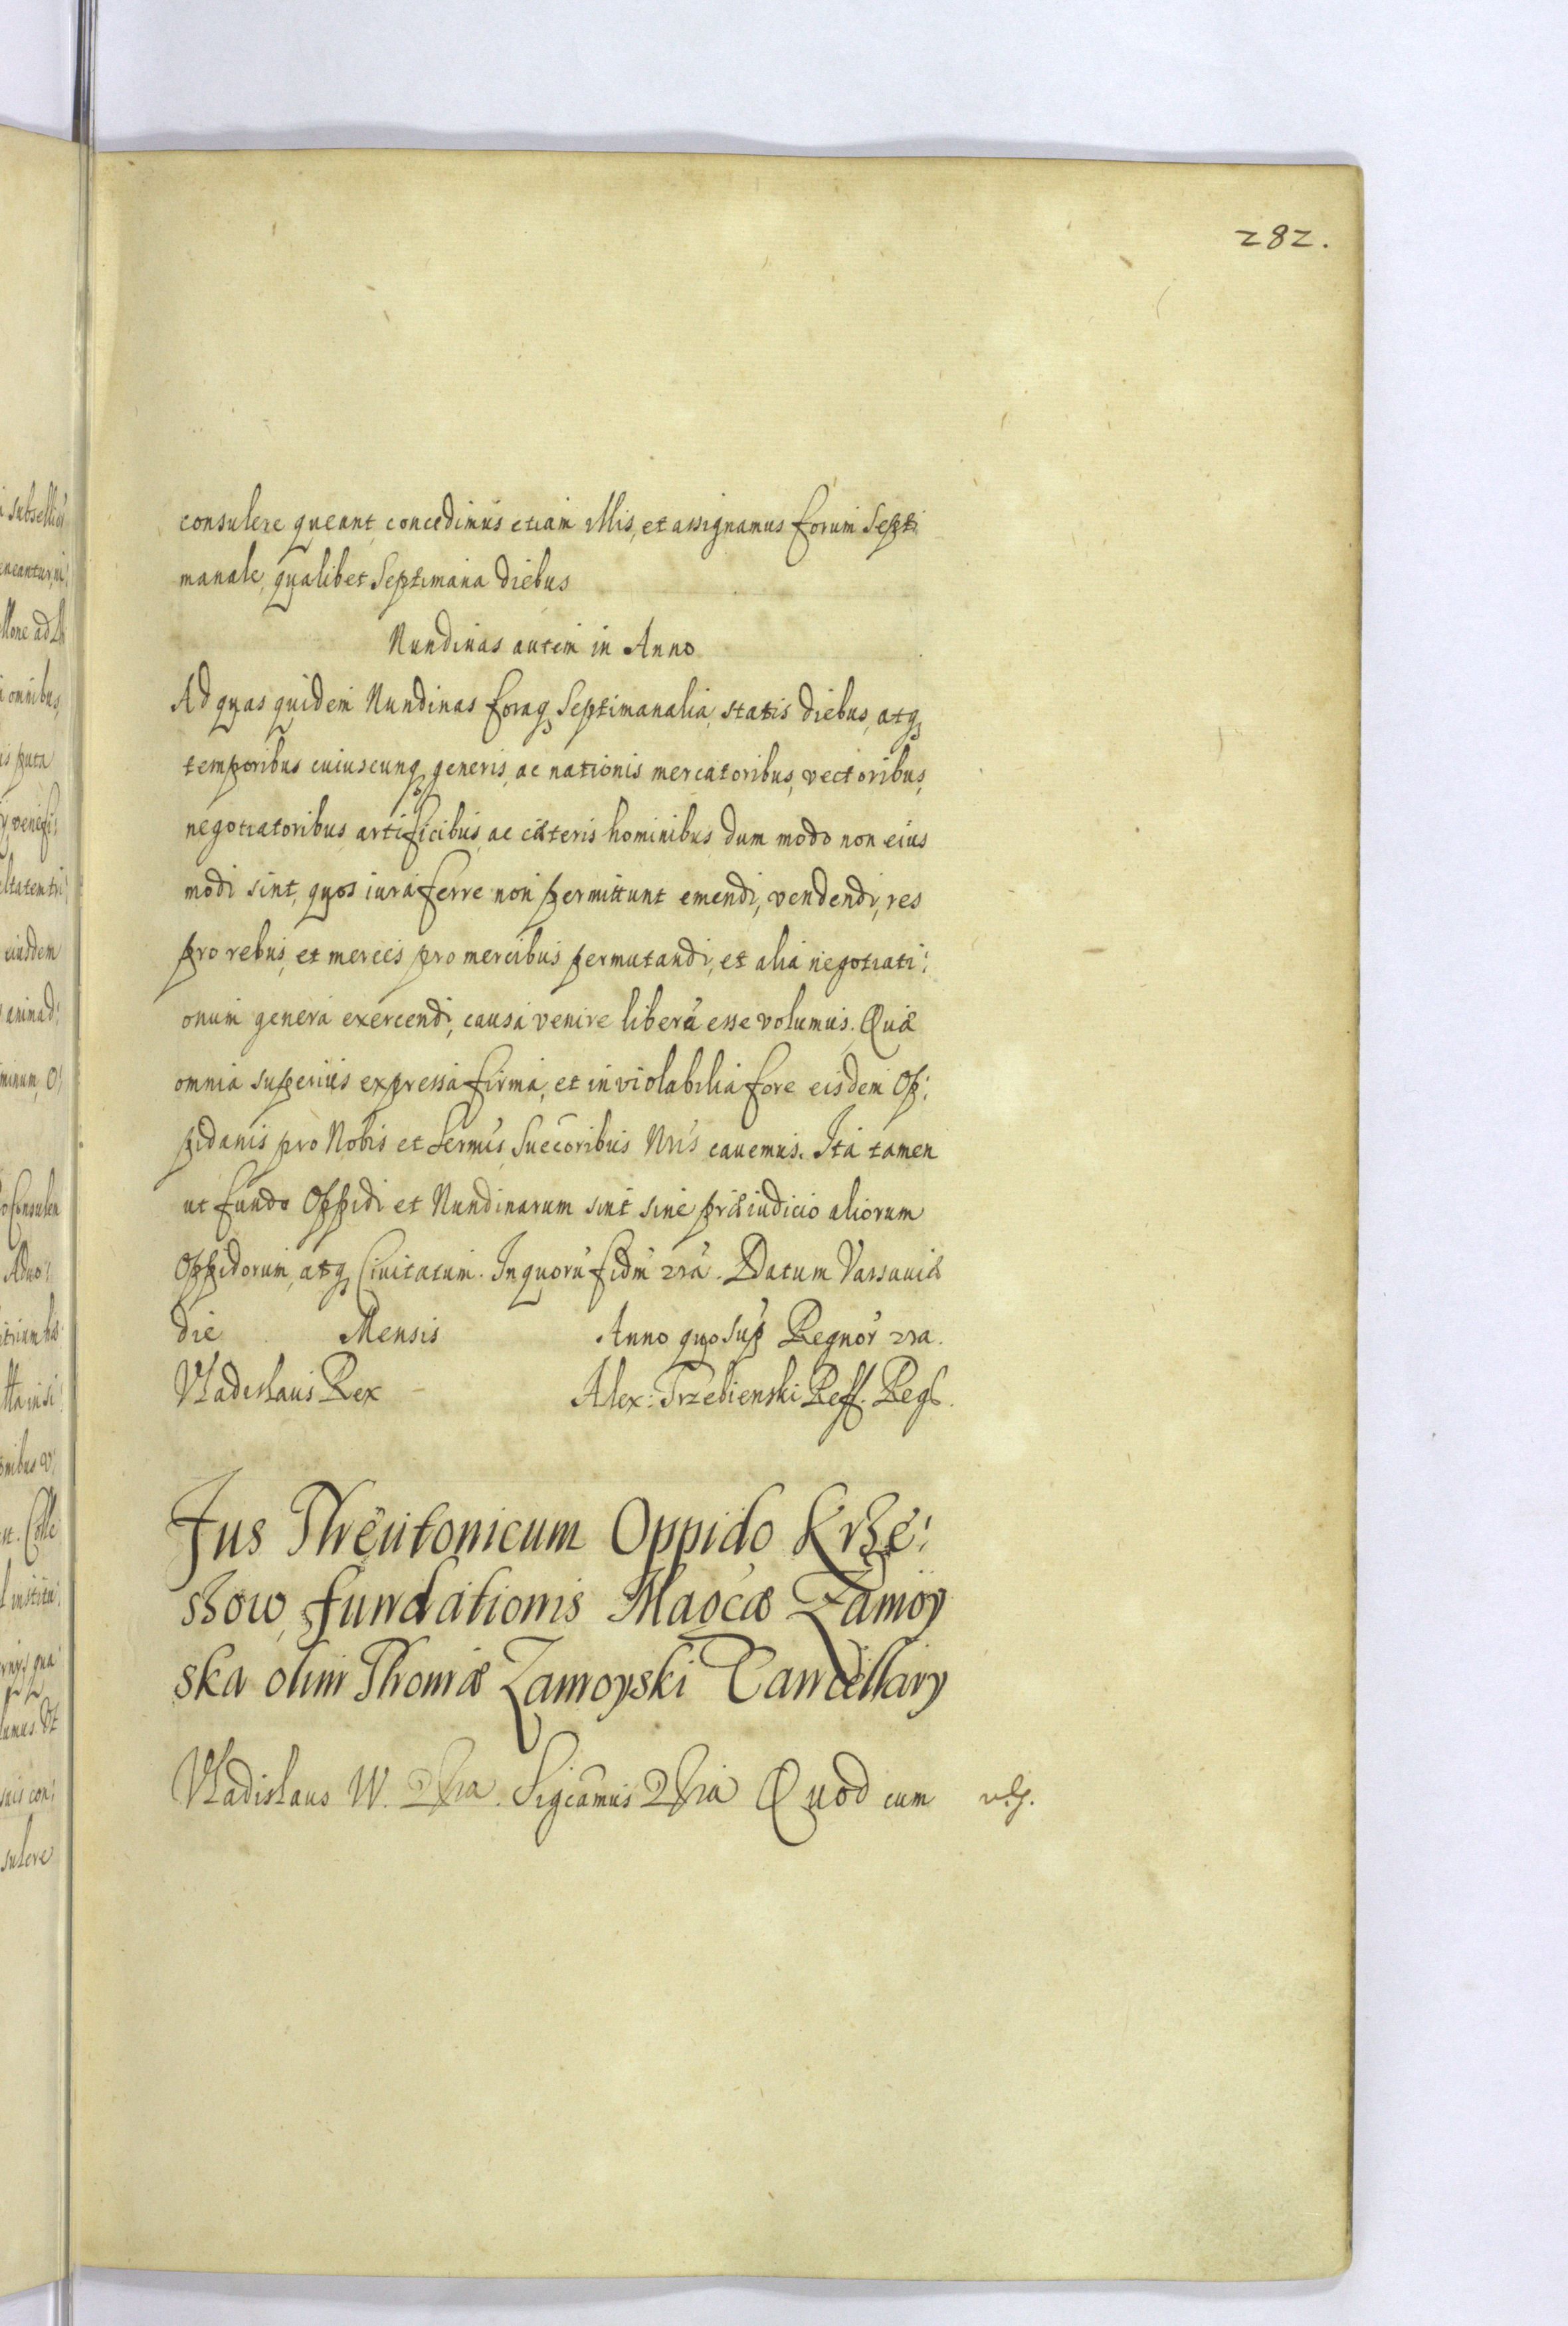 282.
consulere queant, concedimus etiam illis, et assignamus forum Septi
manale, qualibet Septimana diebus
Nundinas autem in Anno
Ad quas quidem Nundinas foraq Septimanalia, statis diebus, atq
temporibus cuiuscunq generis, ac nationis mercatoribus, vectoribus,
negotiatoribus artificibus, ac cæteris hominibus dum modo non eius
modi sint, quos iura ferre non permittunt emendi, vendendi, res
pro rebus, et merces pro mercibus permutandi, et alia negotiati:
onum genera exercendi, causa venire liberũ esse volumus. Quæ
omnia superius expressa firma, et inviolabilia fore eisdem Op:
pidanis pro Nobis et Sermis Succoribus Nris cavemus. Ita tamen
ut fundo Oppidi et Nundinarum sint sine præiudicio aliorum
Oppidorum, atq Civitatum. In quorũ fidm ‌ra. Datum Varsaviæ
die Mensis Anno quo sup Regnor ‌ra.
Vladislaus Rex Alex: Trzebienski Reff. Regs.
Jus Theutonicum Oppido Krze:
szow, fundationis Magcæ Zamoy
ska olim Thomæ Zamoyski Cancellary
Vladislaus IV. Sigcamus Quod cum